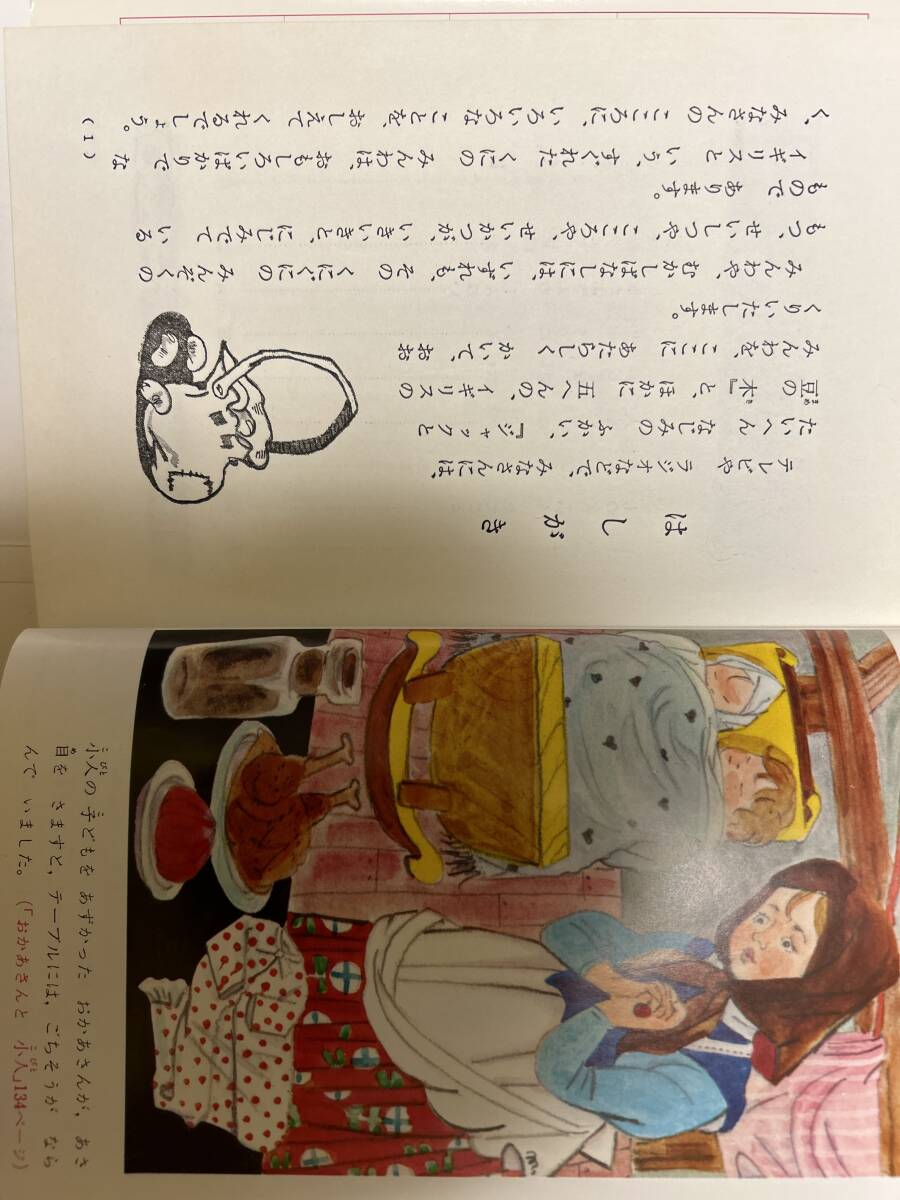 はしがき
テレビや ラジオなどで、みなさんには、
たいへん なじみの ふかい、『ジャックと
豆の 木』と、ほかに 五へんの、イギリスの
みんわを、ここに あたらしく かいて、おお
くりいたします。
みんわや、むかしばなしには、いずれも、その くにぐにの みんぞくの
もつ、せいしつや、こころや、せいかつが、いきいきと、にじみでて いる
もので あります。
イギリスと いう、すぐれた くにの みんわは、おもしろいばかりで な
く、みなさんの こころに、いろいろな ことを、おしえて くれるでしょう。
(1)
小人の 子どもを あずかった おかあさんが、あさ
目を さますと、テーブルには、ごちそうが なら
んで いました。(「おかあさんと 小人」134ページ)